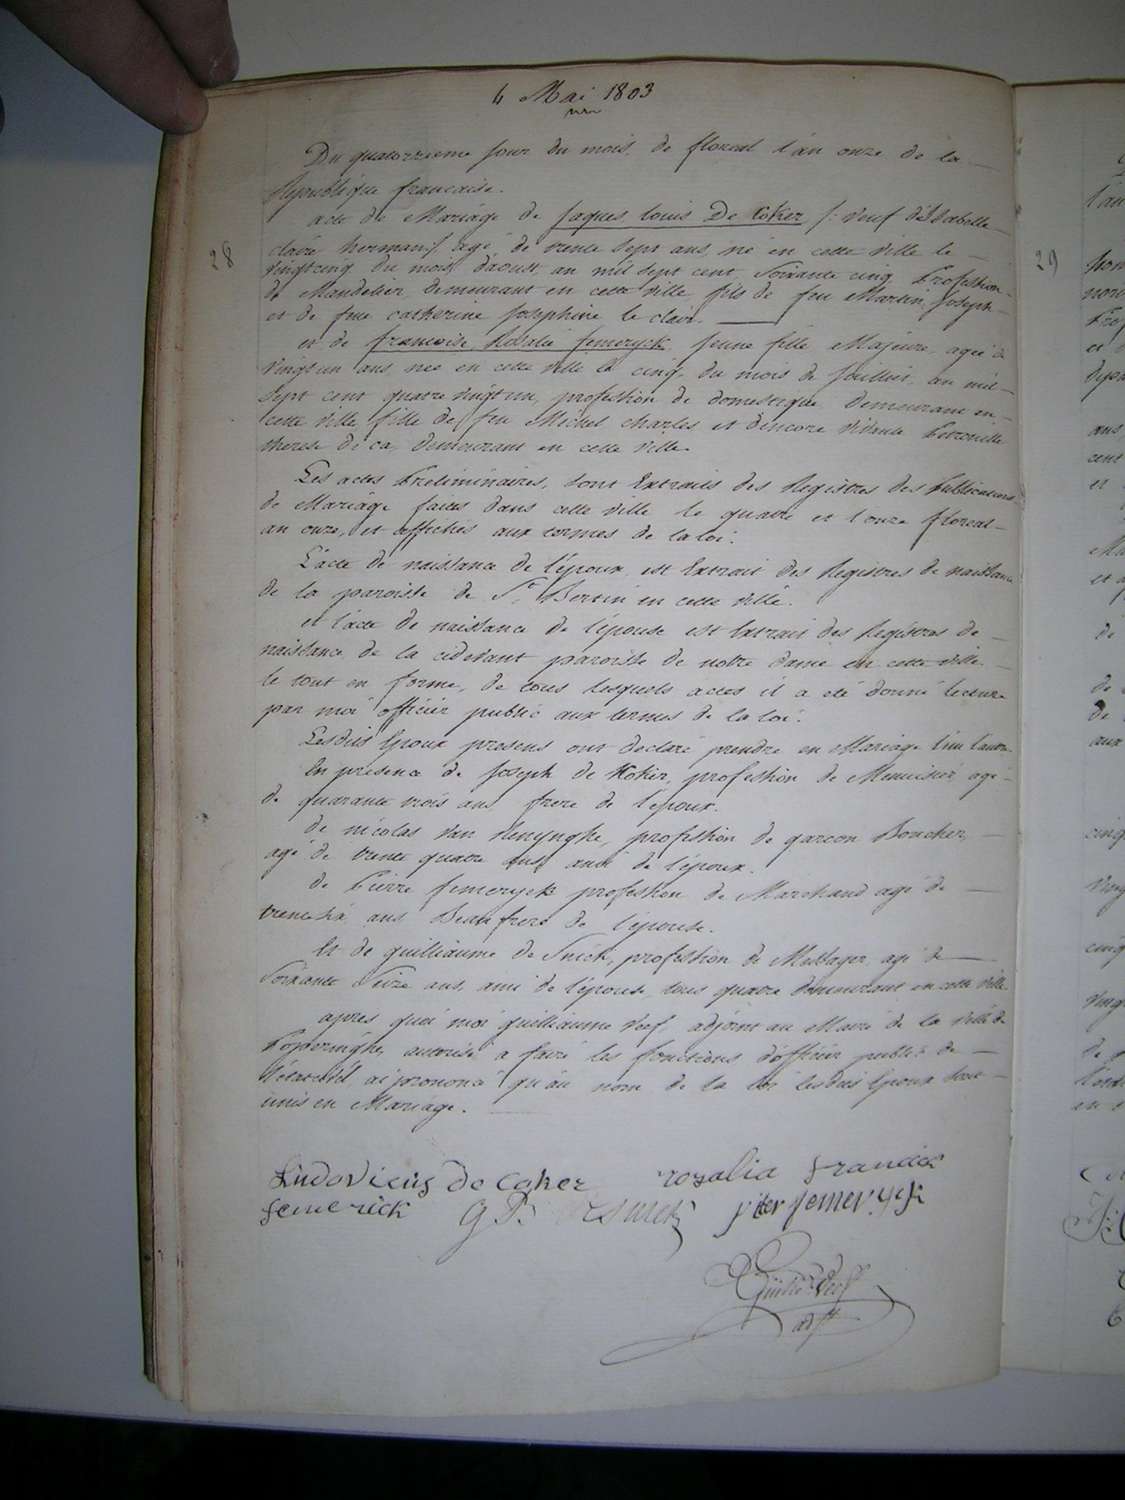 4 Mai 1803
Du quatorzieme jour du mois de floreal l'an onze de la
Republique francaise.
28
acte de Mariage de Jaques Louis De Coker /: veuf d'Isabelle
claire herman :/ agé de trente sept ans, né en cette ville le
vingtcinq du mois d'aoust, an mil sept cent soixante cinq Profession
de Mandelier, demeurant en cette ville, fils de feu Martin Joseph
et de feue catherine Josephine le clair.
et de francoise Rosalie femeryck, jeune fille Majeure, agée de
vingtun ans née en cette ville le cinq du mois de Juillet, an mil
sept cent quatre vingt un, profession de domestique demeurant en
cette ville, fille de feu Michel charles et d'encore vivante Petronille
therese de ca, demeurant en cette ville.
Les actes Preliminaires, sont Extraits des Registres des Publications
de Mariage faites dans cette ville le quatre et l'onze floreal
an onze, et affichés aux termes de la loi.
L'acte de naissance de l'époux est Extrait des Registres de naissance
de la paroisse de St. Bertin en cette ville.
et l'acte de naissance de l'épouse est Extrait des Registres de
naissance de la cidevant paroisse de notre dame en cette ville
le tout en forme, de tous lesquels actes il a été donné lecture
par moi officier public aux termes de la loi.
Lesdits Epoux presens ont declaré prendre en Mariage l'un l'autre
En presence de Joseph de Koker, profession de Menuisier agé
de quarante trois ans frere de l'époux.
de nicolas van renynghe, profession de garcon Boucher,
agé de trente quatre ans ami de l'époux.
de Pierre femeryck profession de Marchand agé de
trentesix ans Beaufrere de l'épouse.
Et de guilliaume de Snick, profession de Messager agé de
soixante seize ans, ami de l'épouse, tous quatre demeurant en cette ville
apres quoi moi guilliaume Veef, adjoint au Maire de la ville de
Poperinghe, autorisé a faire les fonctions d'officier public de
l'état civil, ai prononcé qu'au nom de la loi lesdits Epoux sont
unis en Mariage.
Ludovicus de Coker rosalia francisca
femerick G P. Pieter femeryck
adjt
29